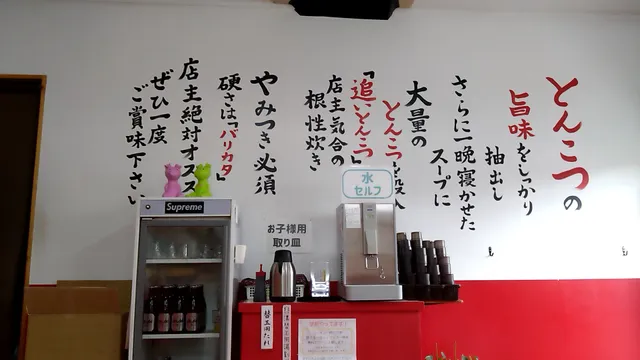 とんこつの
旨味をしっかり
抽出し
さらに一晩寝かせた
スープに
大量の
とんこつを
「追いとんこつ」
店主気合の
根性炊き
やみつき必須
硬さは「バリカタ」
店主絶対オススメ
ぜひ一度
ご賞味下さい
Supreme
お子様用
取り皿
水
セルフ
替玉用たれ